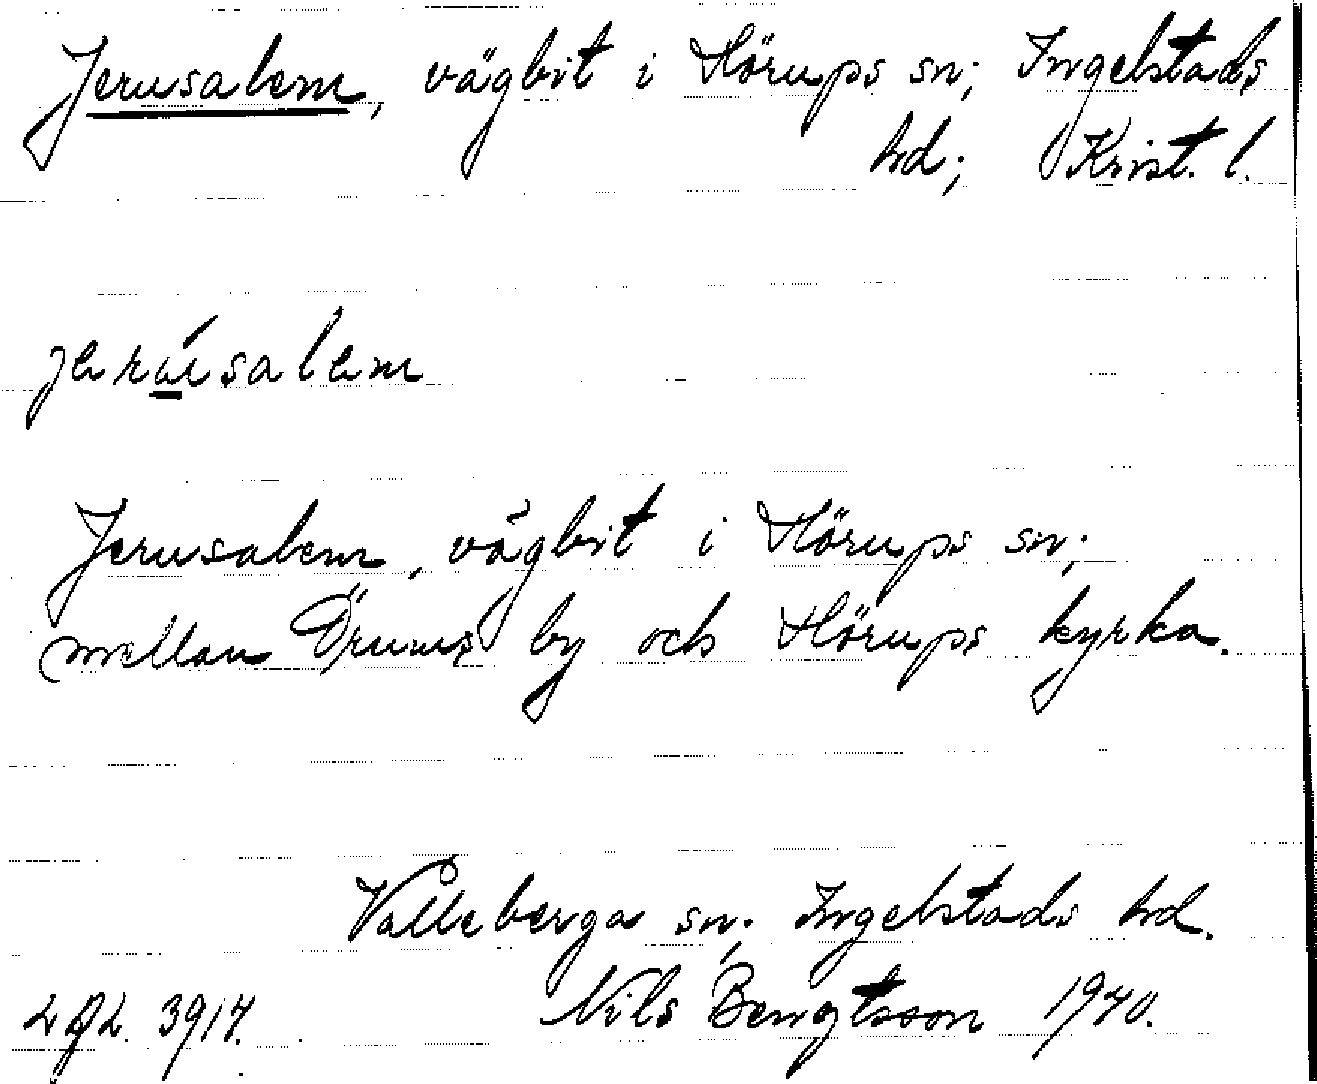 Jerusalem, vägbit i Hörups sn; Ingelstads
hd; Krist. l.
jerúsalem
Jerusalem, vägbit i Hörups sn;
mellan Örums by och Hörups kyrka.
Valleberga sn; Ingelstads hd.
Nils Bengtsson 1940.